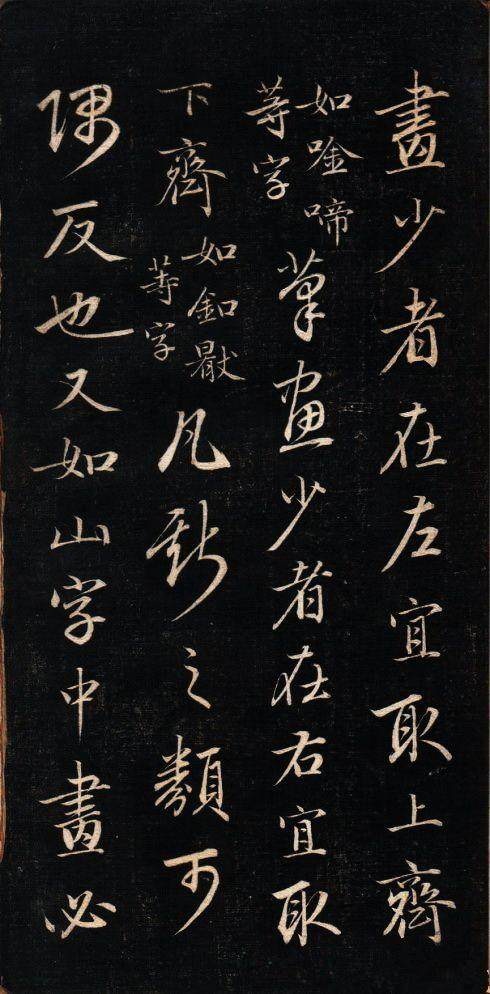 畫少者在左宜取上齊
如唫啼
等字
筆画少者在右宜取
下齊
如釦
等字
凡斯之類可
隅反也又如山字中畫必